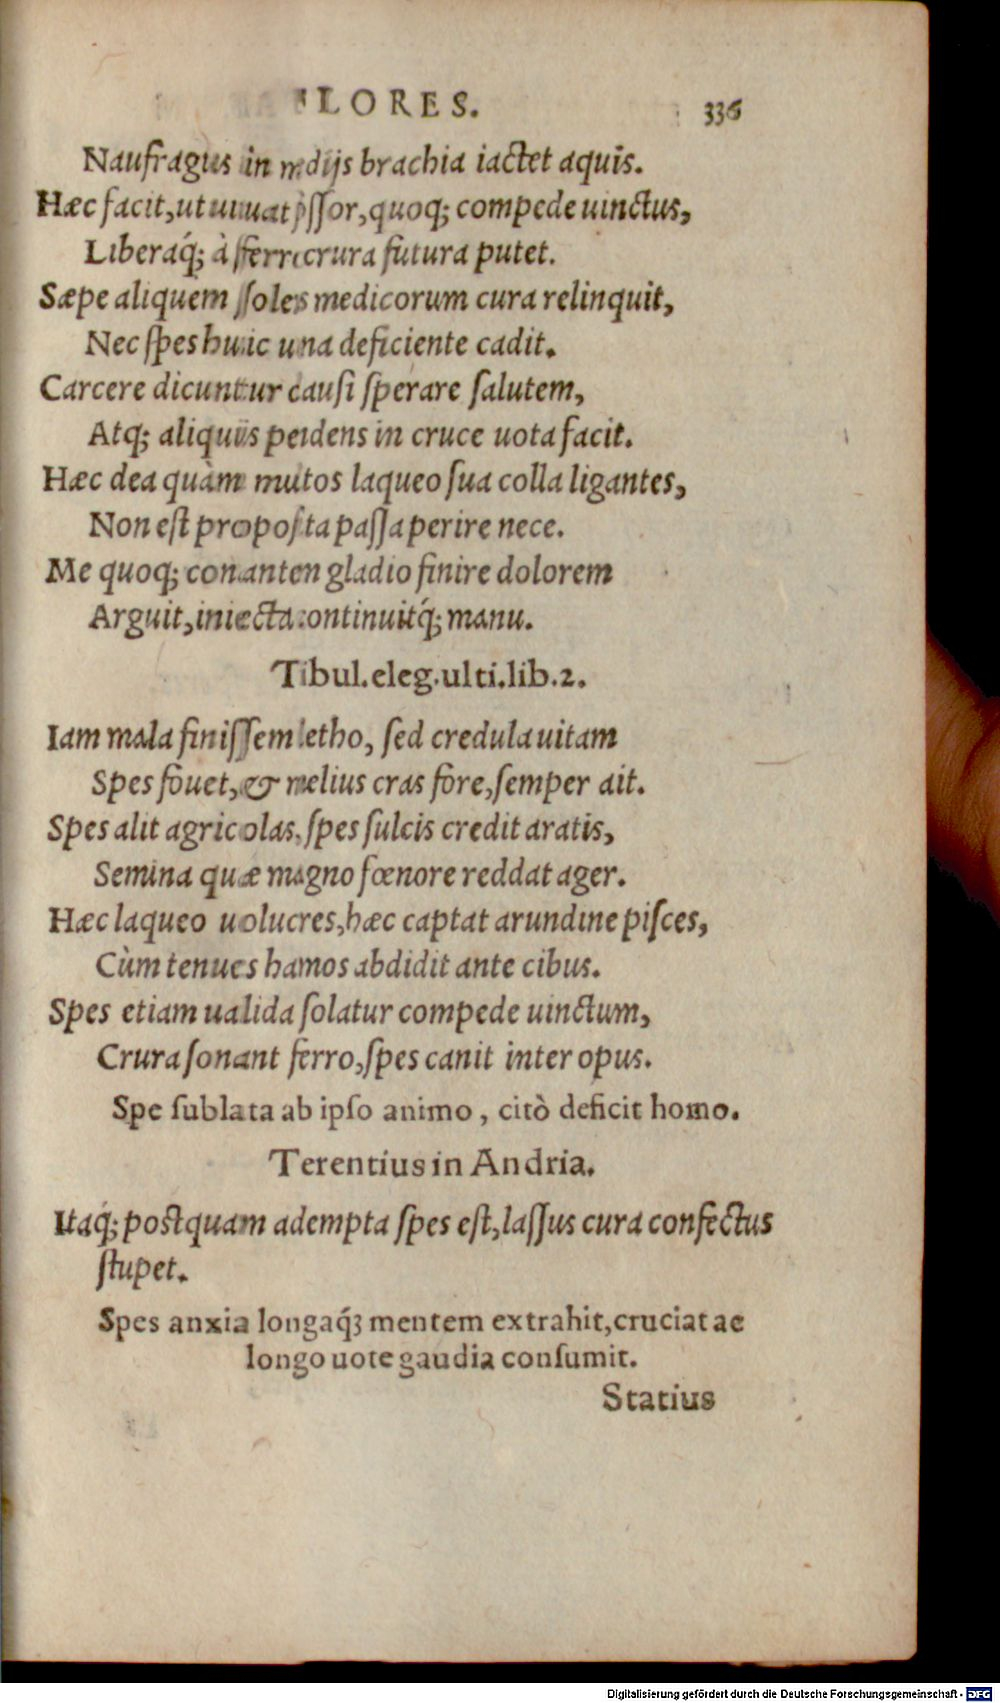 FLORES. 336
Naufragus in medijs brachia iactet aquis.
Hæc facit, ut uiuat fossor, quoq; compede uinctus,
Liberaq́; à ferro crura futura putet.
Sæpe aliquem soles medicorum cura relinquit,
Nec spes huic uena deficiente cadit.
Carcere dicuntur clausi sperare salutem,
Atq; aliquis pendens in cruce uota facit.
Hæc dea quàm multos laqueo sua colla ligantes,
Non est proposita passa perire nece.
Me quoq; conantem gladio finire dolorem
Arguit, iniecta continuitq́; manu.
Tibul. eleg. ulti. lib. 2.
Iam mala finissem letho, sed credula uitam
Spes fouet, & melius cras fore, semper ait.
Spes alit agricolas, spes sulcis credit aratis,
Semina quæ magno fœnore reddat ager.
Hæc laqueo uolucres, hæc captat arundine pisces,
Cùm tenues hamos abdidit ante cibus.
Spes etiam ualida solatur compede uinctum,
Crura sonant ferro, spes canit inter opus.
Spe sublata ab ipso animo, citò deficit homo.
Terentius in Andria.
Itaq́; postquam adempta spes est, lassus cura confectus
stupet.
Spes anxia longaq́; mentem extrahit, cruciat ac
longo uote gaudia consumit.
Statius
Digitalisierung gefördert durch die Deutsche Forschungsgemeinschaft - DFG